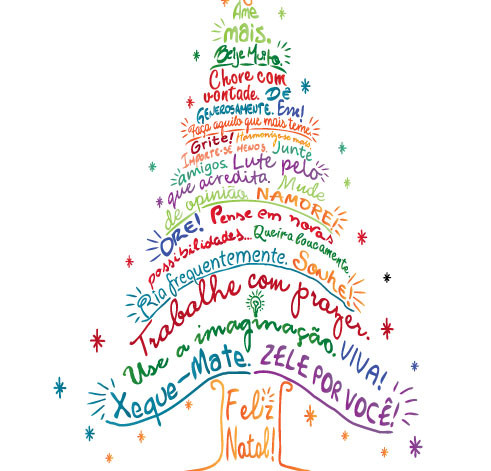 Ame
mais.
Beije Muito.
Chore com
vontade. Dê
GENEROSAMENTE. Erre!
Faça aquilo que mais teme.
Grite! Harmonize-se mais.
IMPORTE-SE MENOS. Junte
amigos. Lute pelo
que acredita. Mude
de opinião. NAMORE!
ORE! Pense em novas
possibilidades... Queira loucamente.
Ria frequentemente. Sonhe!
Trabalhe com prazer.
Use a imaginação. VIVA!
Xeque-Mate. ZELE POR VOCÊ!
Feliz
Natal!